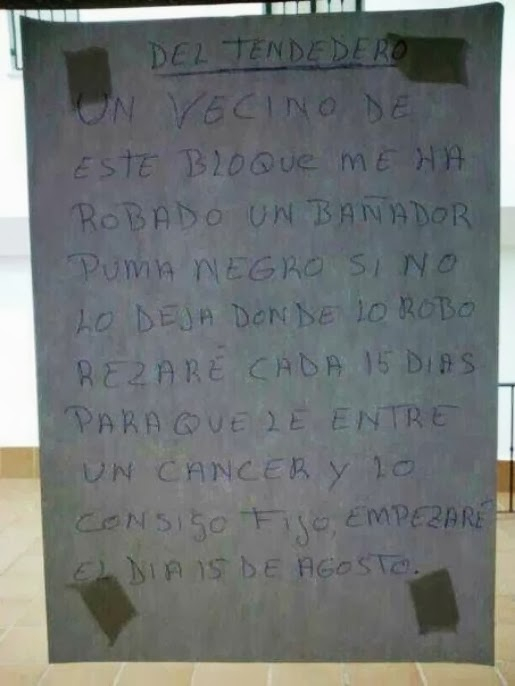 DEL TENDEDERO
UN VECINO DE
ESTE BLOQUE ME HA
ROBADO UN BAÑADOR
PUMA NEGRO SI NO
LO DEJA DONDE LO ROBO
REZARÉ CADA 15 DIAS
PARA QUE LE ENTRE
UN CANCER Y LO
CONSIGO FIJO, EMPEZARÉ
EL DIA 15 DE AGOSTO.